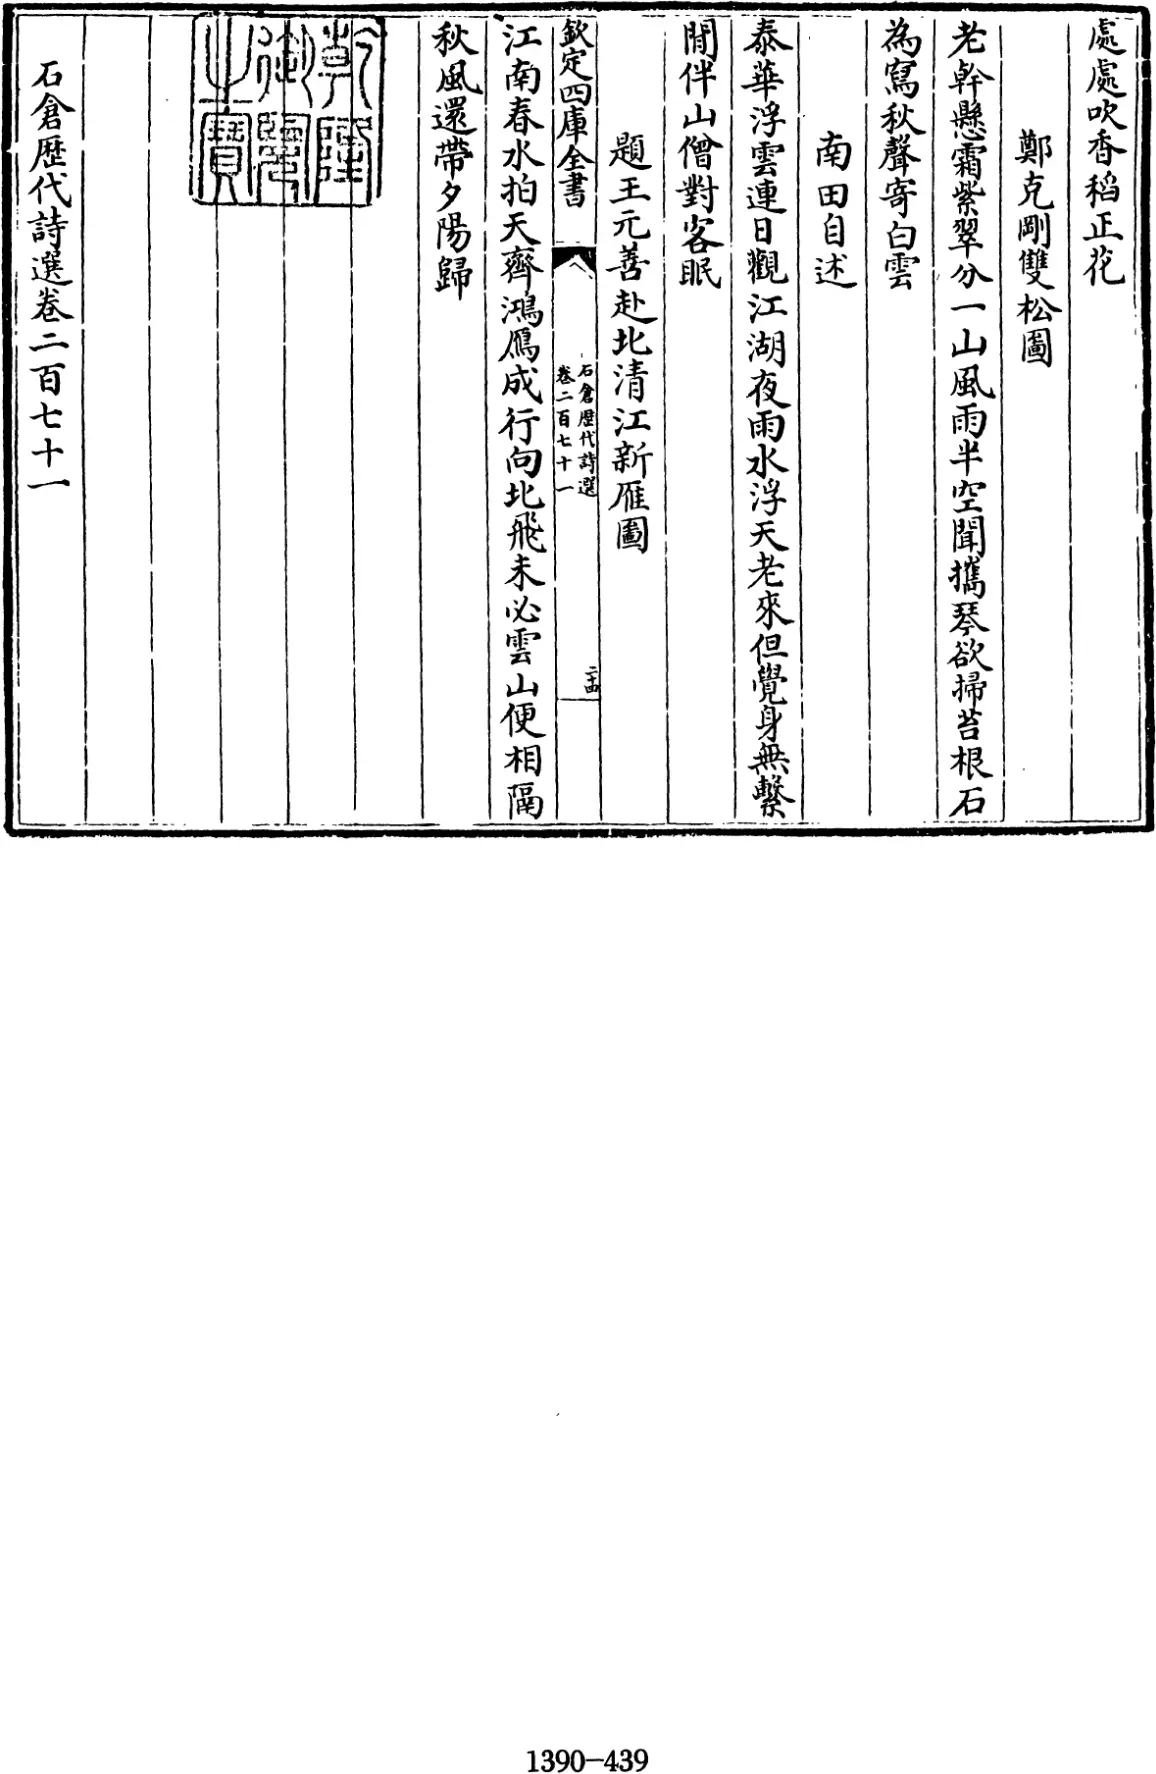 處處吹香稻正花
鄭克剛雙松圖
老幹懸霜紫翠分一山風雨半空聞攜琴欲掃苔根石
為寫秋聲寄白雲
南田自述
泰華浮雲連日觀江湖夜雨水浮天老來但覺身無繫
閒伴山僧對客眠
題王元善赴北清江新雁圖
欽定四庫全書
石倉歷代詩選
卷二百七十一
江南春水拍天齊鴻鴈成行向北飛未必雲山便相隔
秋風還帶夕陽歸
乾隆御覽之寶
石倉歷代詩選卷二百七十一
1390-439